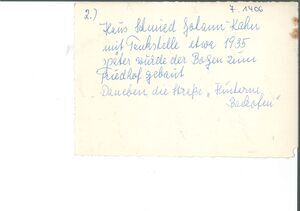 2.)
7. 1406
Haus Schmied Johann Hahn
mit Tankstelle etwa 1935
später wurde der Bogen zum
Friedhof gebaut
Daneben die Straße „Hinterm
Backofen"